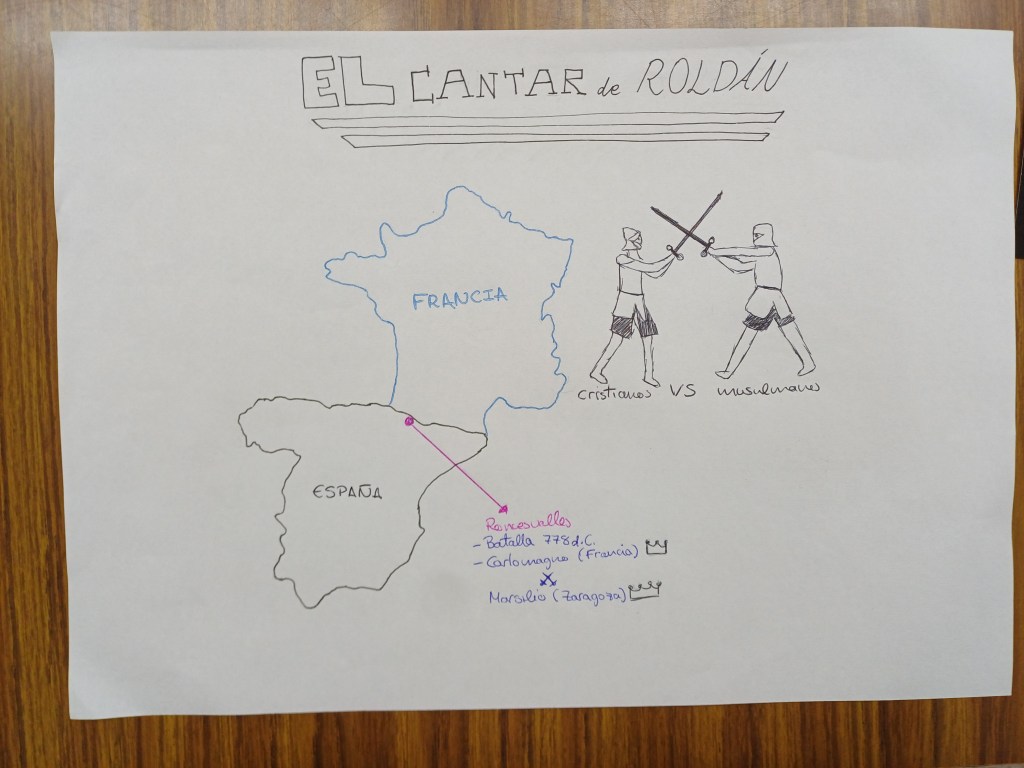 EL CANTAR de ROLDÁN
FRANCIA
cristianos VS musulmanes
ESPAÑA
Roncesvalles
- Batalla 778 d.C.
- Carlomagno (Francia)
Marsilio (Zaragoza)